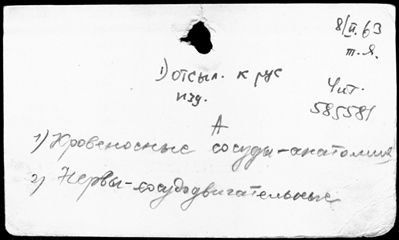 8/II.63
т. я.
1) отсыл. к рус
изд.
Чит.
585581
А
1) Кровеносные сосуды-анатомия
2) Нервы-сосудодвигательные